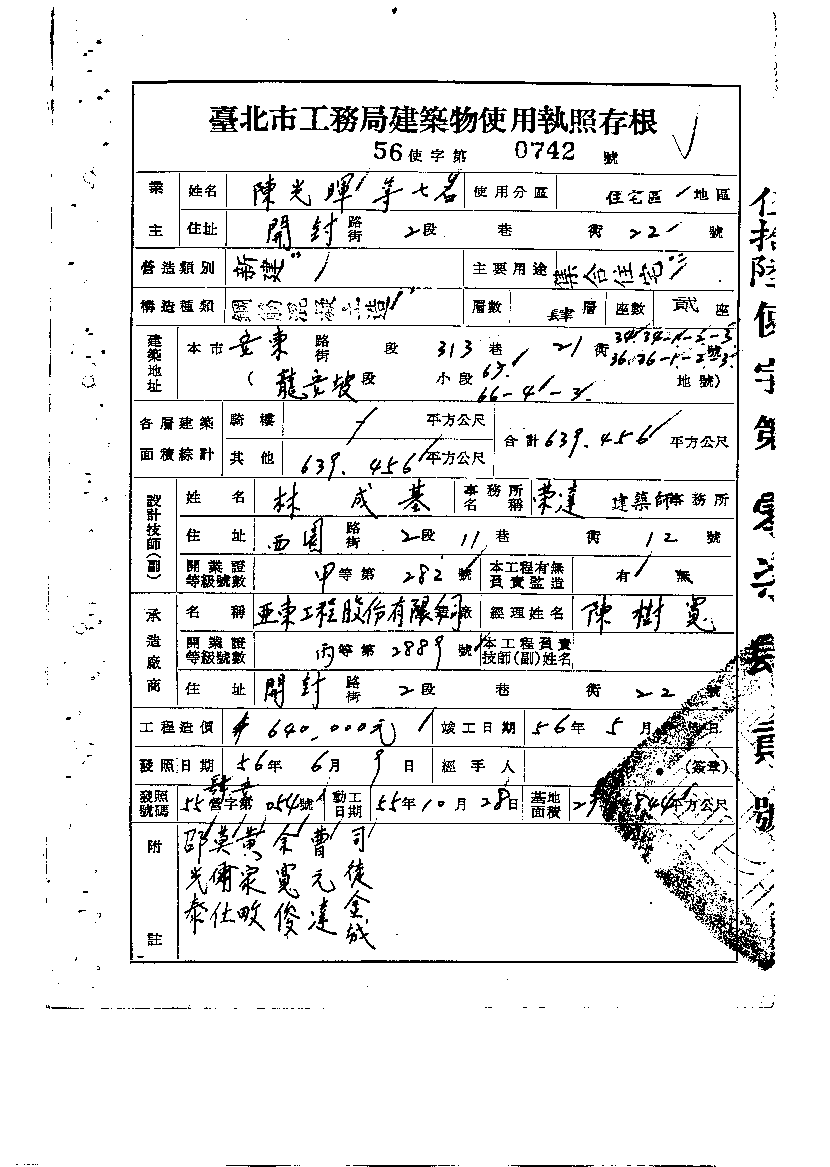 臺北市工務局建築物使用執照存根
56使字第 0742 號
業主 姓名 陳光暉等七名 使用分區 住宅區 地區
住址 開封 路街 2段 巷 衖 22 號
營造類別 新建 主要用途 集合住宅
構造種類 鋼筋混凝土造 層數 肆層 座數 貳座
建築地址 本市 安東 路街 段 313巷 21衖 34.34-1-2-3 36.36-1-2-3 號
(龍安坡段 小段 67. 66-4-3 地號)
各層建築面積綜計 騎樓 平方公尺 合計 639.456 平方公尺
其他 639.456 平方公尺
設計技師(副) 姓名 林成基 事務所名稱 榮達 建築師事務所
住址 西園 路街 2段 11巷 衖 12 號
開業證等級號數 甲等第 282 號 本工程有無負責監造 有 無
承造廠商 名稱 亞東工程股份有限公司 經理姓名 陳樹寬
開業證等級號數 丙等第 2889 號 本工程負責技師(副)姓名
住址 開封 路街 2段 巷 衖 22 號
工程造價 640,000元 竣工日期 56年 5月 日
發照日期 56年 6月 9日 經手人 (簽章)
發照號碼 55營字第 054號 動工日期 55年10月28日 基地面積 844 平方公尺
附註
司徒金城
曹元達
余寬俊
黃宗畋
莫傭仕
邵光泰
伍拾陸使字第零柒肆貳號